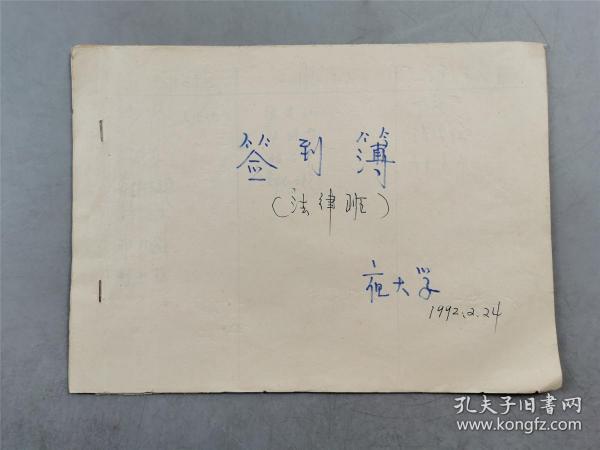 签到簿
(法律班)
夜大学
1992.2.24
孔夫子旧書网
www.kongfz.com